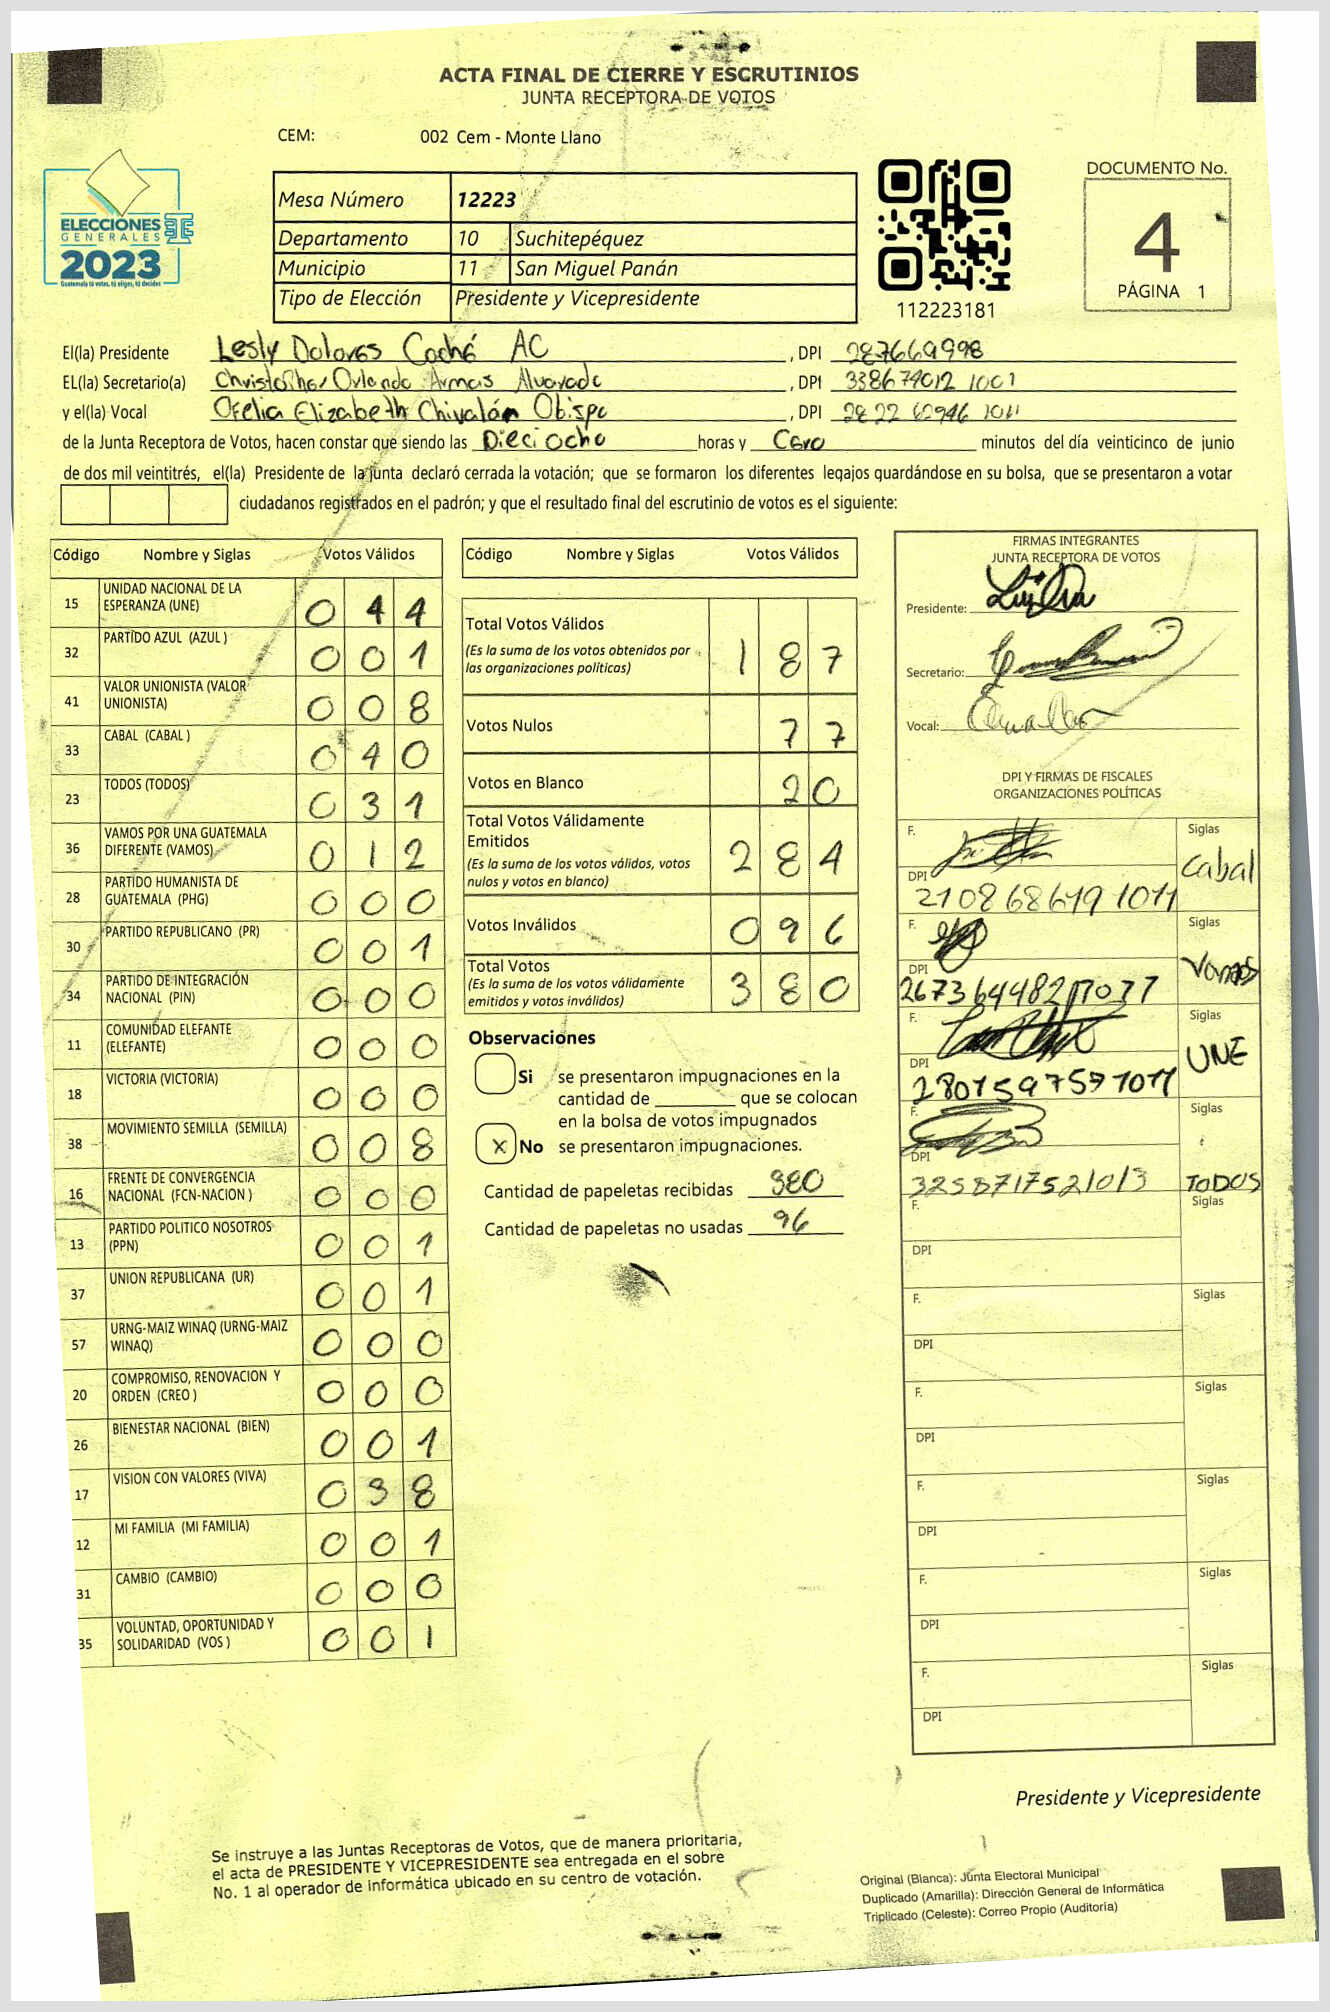 ACTA FINAL DE CIERRE Y ESCRUTINIOS
JUNTA RECEPTORA DE VOTOS
CEM: 002 Cem - Monte Llano
ELECCIONES
GENERALES
2023
Guatemala tú votas, tú eliges, tú decides
Mesa Número 12223
Departamento 10 Suchitepéquez
Municipio 11 San Miguel Panán
Tipo de Elección Presidente y Vicepresidente
112223181
DOCUMENTO No.
4
PÁGINA 1
El(la) Presidente Lesly Dolores Coché AC , DPI 287669998
EL(la) Secretario(a) Christopher Orlando Armas Alvarado , DPI 338674012 1001
y el(la) Vocal Ofelia Elizabeth Chivalán Obispo , DPI 2822 62946 1011
de la Junta Receptora de Votos, hacen constar que siendo las Dieciocho horas y Cero minutos del día veinticinco de junio
de dos mil veintitrés, el(la) Presidente de la junta declaró cerrada la votación; que se formaron los diferentes legajos guardándose en su bolsa, que se presentaron a votar
ciudadanos registrados en el padrón; y que el resultado final del escrutinio de votos es el siguiente:
Código Nombre y Siglas Votos Válidos
15 UNIDAD NACIONAL DE LA ESPERANZA (UNE) 0 4 4
32 PARTIDO AZUL (AZUL ) 0 0 1
41 VALOR UNIONISTA (VALOR UNIONISTA) 0 0 8
33 CABAL (CABAL ) 0 4 0
23 TODOS (TODOS) 0 3 1
36 VAMOS POR UNA GUATEMALA DIFERENTE (VAMOS) 0 1 2
28 PARTIDO HUMANISTA DE GUATEMALA (PHG) 0 0 0
30 PARTIDO REPUBLICANO (PR) 0 0 1
34 PARTIDO DE INTEGRACIÓN NACIONAL (PIN) 0 0 0
11 COMUNIDAD ELEFANTE (ELEFANTE) 0 0 0
18 VICTORIA (VICTORIA) 0 0 0
38 MOVIMIENTO SEMILLA (SEMILLA) 0 0 8
16 FRENTE DE CONVERGENCIA NACIONAL (FCN-NACION ) 0 0 0
13 PARTIDO POLITICO NOSOTROS (PPN) 0 0 1
37 UNION REPUBLICANA (UR) 0 0 1
57 URNG-MAIZ WINAQ (URNG-MAIZ WINAQ) 0 0 0
20 COMPROMISO, RENOVACION Y ORDEN (CREO ) 0 0 0
26 BIENESTAR NACIONAL (BIEN) 0 0 1
17 VISION CON VALORES (VIVA) 0 3 8
12 MI FAMILIA (MI FAMILIA) 0 0 1
31 CAMBIO (CAMBIO) 0 0 0
35 VOLUNTAD, OPORTUNIDAD Y SOLIDARIDAD (VOS ) 0 0 1
Código Nombre y Siglas Votos Válidos
Total Votos Válidos 1 8 7
(Es la suma de los votos obtenidos por
las organizaciones políticas)
Votos Nulos 7 7
Votos en Blanco 2 0
Total Votos Válidamente
Emitidos 2 8 4
(Es la suma de los votos válidos, votos
nulos y votos en blanco)
Votos Inválidos 0 9 6
Total Votos 3 8 0
(Es la suma de los votos válidamente
emitidos y votos inválidos)
Observaciones
Si se presentaron impugnaciones en la
cantidad de ________ que se colocan
en la bolsa de votos impugnados
X No se presentaron impugnaciones.
Cantidad de papeletas recibidas 380
Cantidad de papeletas no usadas 96
FIRMAS INTEGRANTES
JUNTA RECEPTORA DE VOTOS
Presidente:
Secretario:
Vocal:
DPI Y FIRMAS DE FISCALES
ORGANIZACIONES POLÍTICAS
F. Siglas
Cabal
DPI 2108686191011
F. Siglas
Vamos
DPI
F. Siglas
UNE
DPI 2801597591011
F. Siglas
DPI
3258717521013 TODOS
F. Siglas
DPI
F. Siglas
DPI
F. Siglas
DPI
F. Siglas
DPI
F. Siglas
DPI
F. Siglas
DPI
Presidente y Vicepresidente
Se instruye a las Juntas Receptoras de Votos, que de manera prioritaria,
el acta de PRESIDENTE Y VICEPRESIDENTE sea entregada en el sobre
No. 1 al operador de informática ubicado en su centro de votación.
Original (Blanca): Junta Electoral Municipal
Duplicado (Amarilla): Dirección General de Informática
Triplicado (Celeste): Correo Propio (Auditoría)